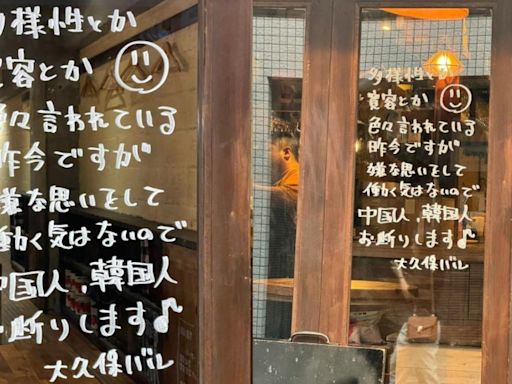 多様性とか
寛容とか
色々言われている
昨今ですが
嫌な思いをして
働く気はないので
中国人、韓国人
お断りします♪
大久保バル
多様性とか
寛容とか
色々言われている
昨今ですが
嫌な思いをして
働く気はないので
中国人、韓国人
お断りします♪
大久保バル